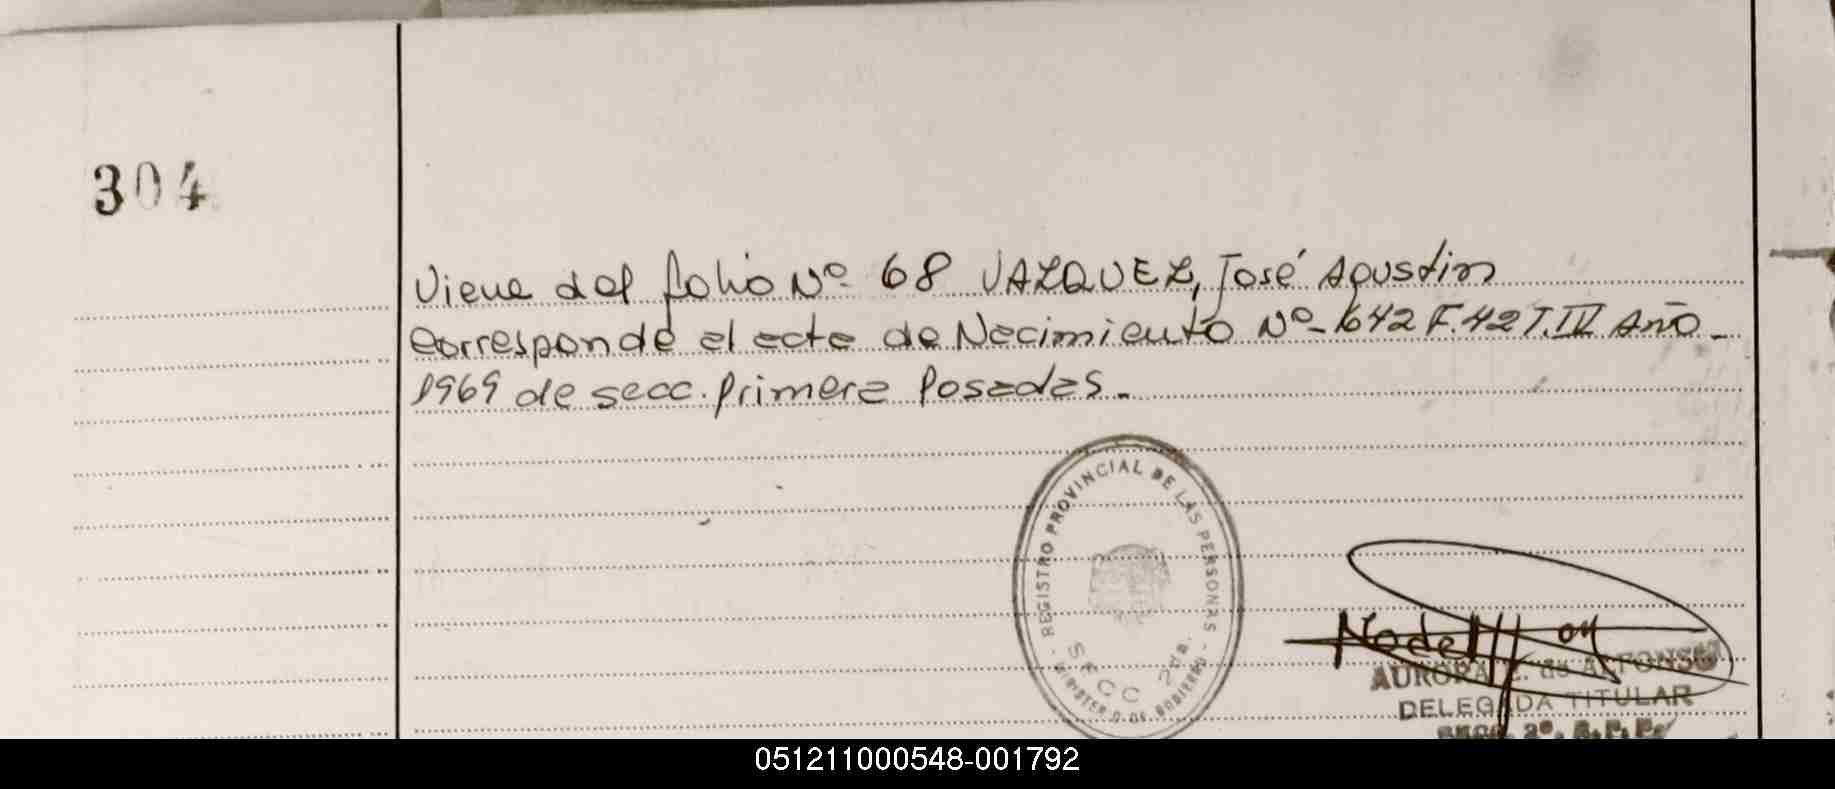 304
Viene del folio Nº 68 VAZQUEZ, José Agustin
corresponde el acta de Nacimiento Nº 1642 F.42 T.IV Año
1969 de secc. primera Posadas.
REGISTRO PROVINCIAL DE LAS PERSONAS
SECC 2da.
MINISTERIO DE GOBIERNO
AURORA E. de ALFONSO
DELEGADA TITULAR
SECC. 2ª. R.P.P.
051211000548-001792